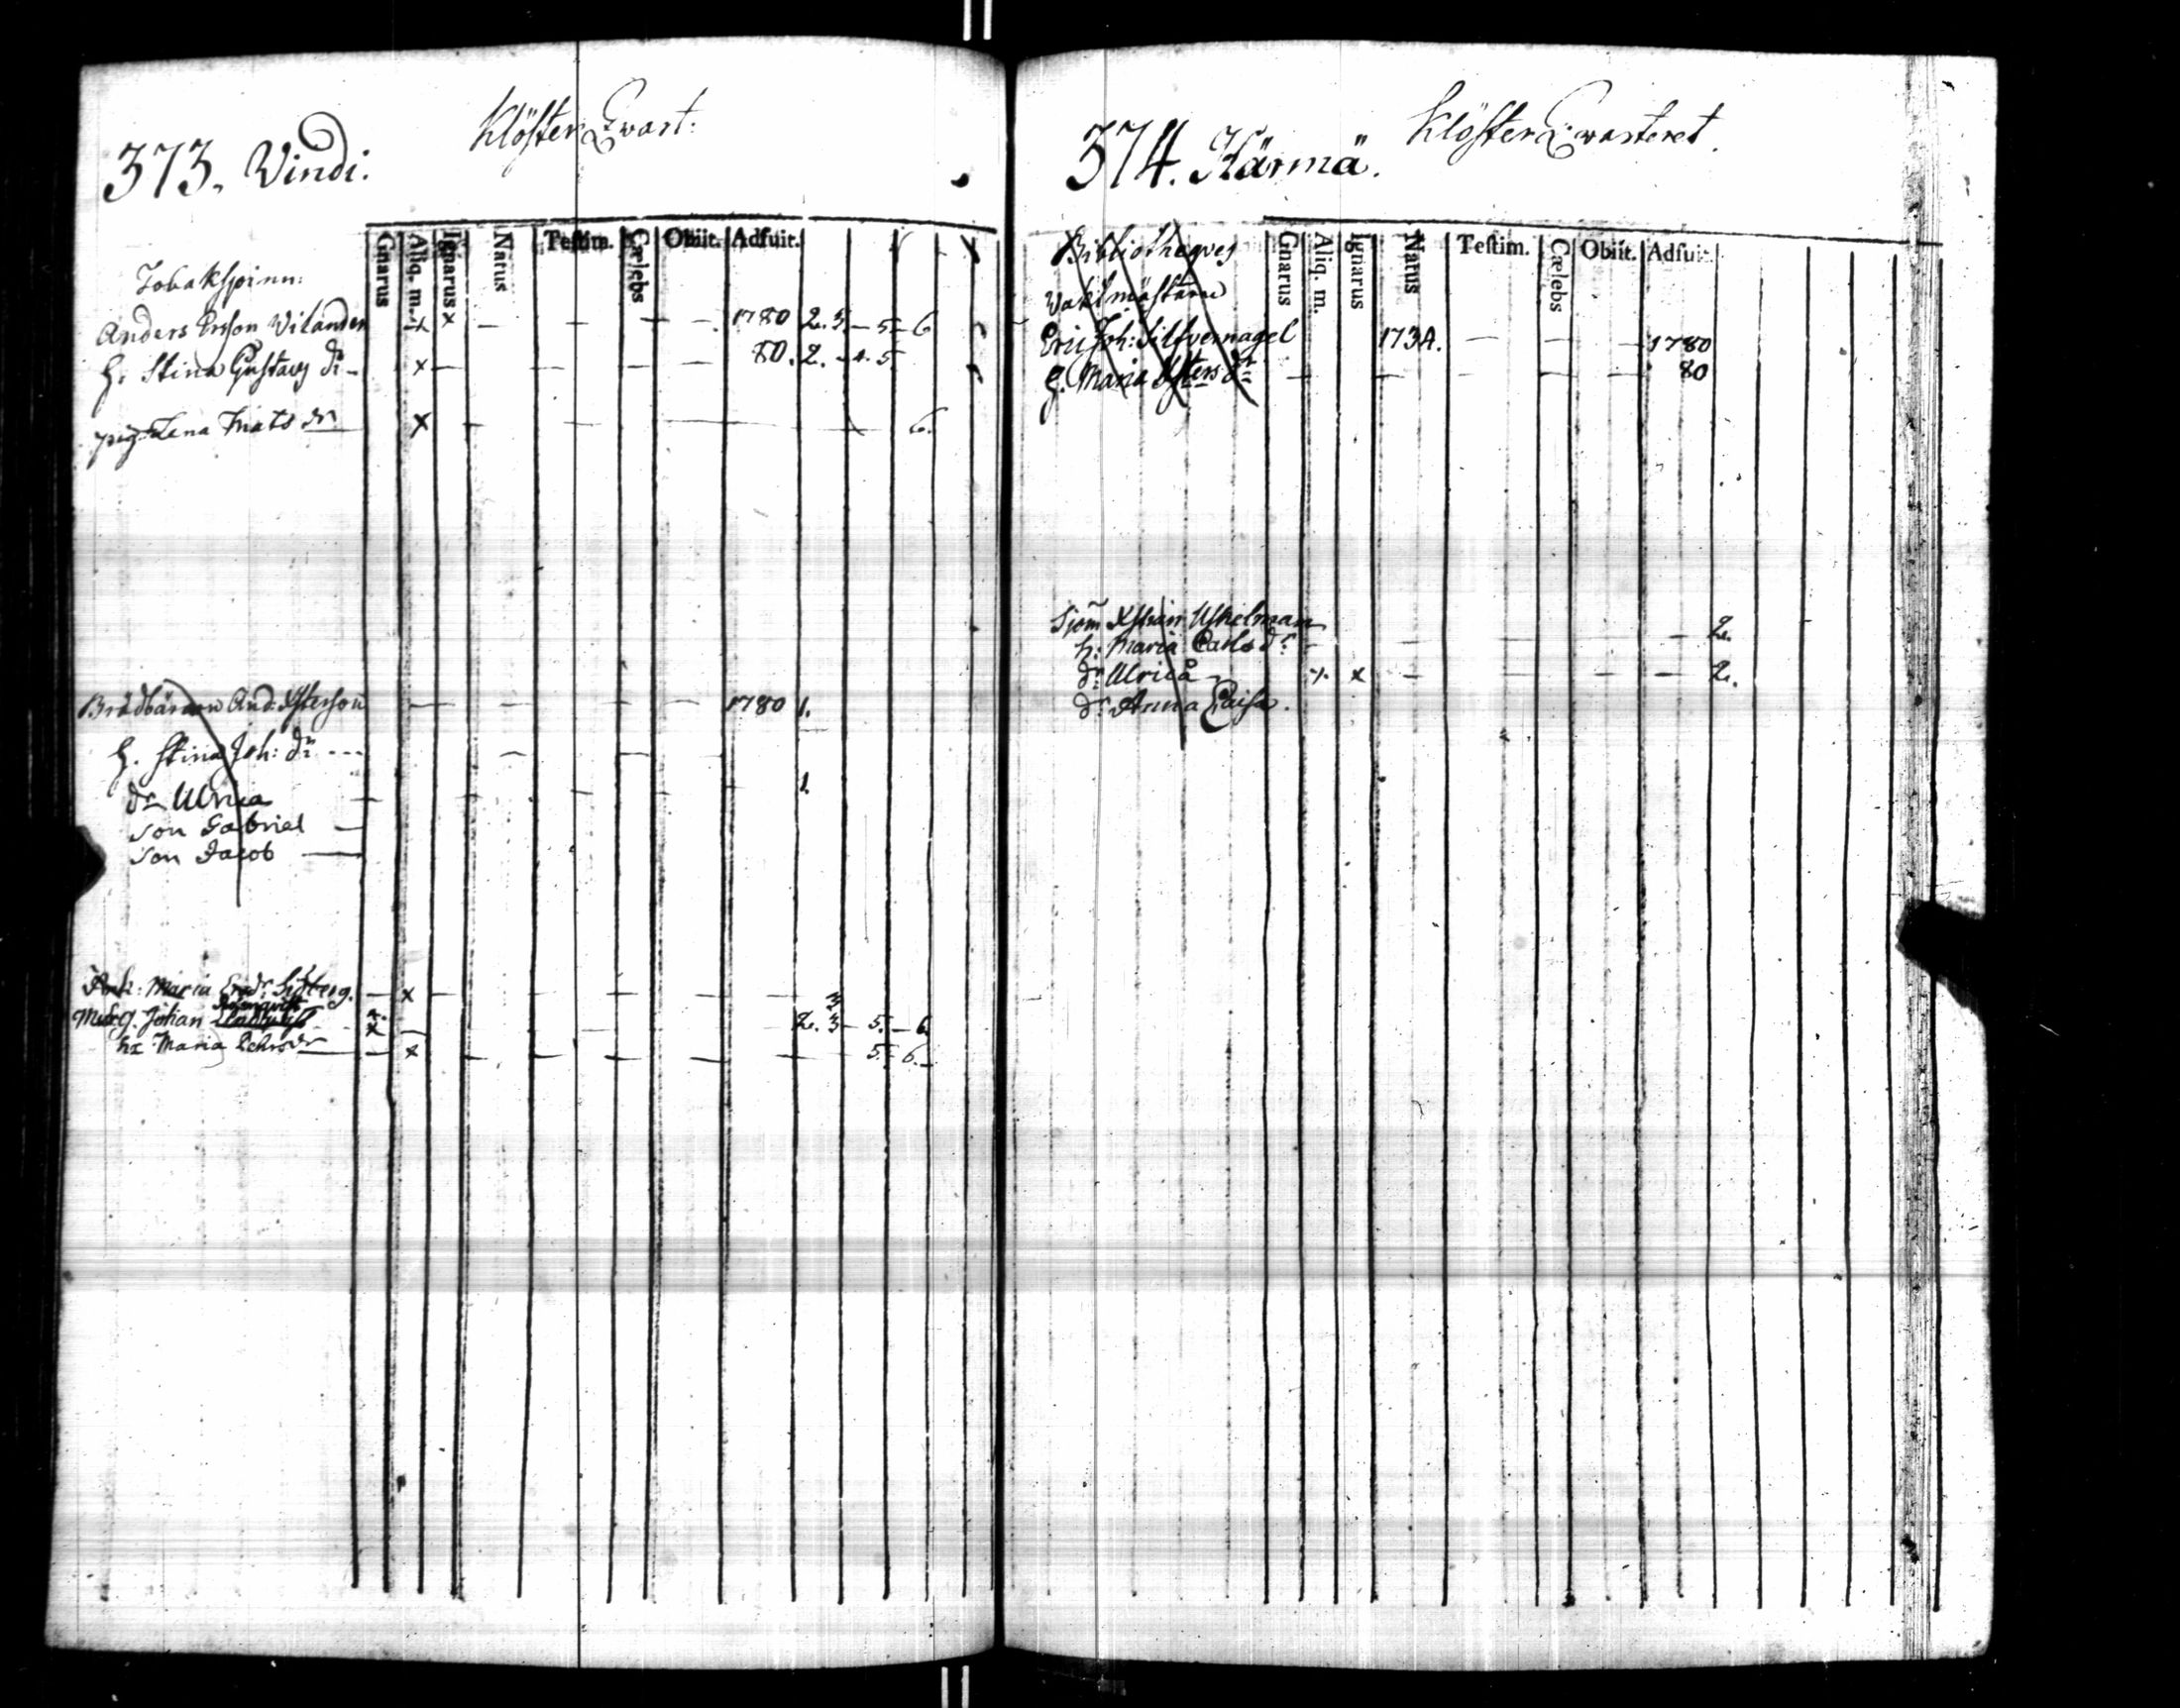 Klöster Qwart:
373. Vindi:
Gnarus Aliq. m. Ignarus Natus Testim. Cælebs Obiit. Adfuit.
Tobakspinn:
Anders Ersson Vilander x x — — — — 1780 2. 3. — 5. — 6
H. Stina Gustavs dr — x — — — — 80. 2. — 4. 5.
pig. Lena Mats dr x — — — 6.
And: Xsterson — — — — 1780 1.
H. Stina Joh: dr ---
dr Ulrica — — — — 1.
son Gabriel —
son Jacob —
Maria — x — — — 3
Johan x — — — 2. 3 — 5. — 6.
Maria — x — — — — — 5. — 6. —
Klöster Qwarteret.
374. Härmä.
Gnarus Aliq. m. Ignarus Natus Testim. Cælebs Obiit. Adfuit.
Bibliotheqves
Vaktmästaren
Eric Joh: Silfvernagel 1734. — — — 1780
H. Maria Xsters dr — — — — — 80
Sjöm Xstian Uhelman
h: Maria Carls dr — — — — — — 2.
dr Ulrica x. x — — — — 2.
dr Anna Caisa.